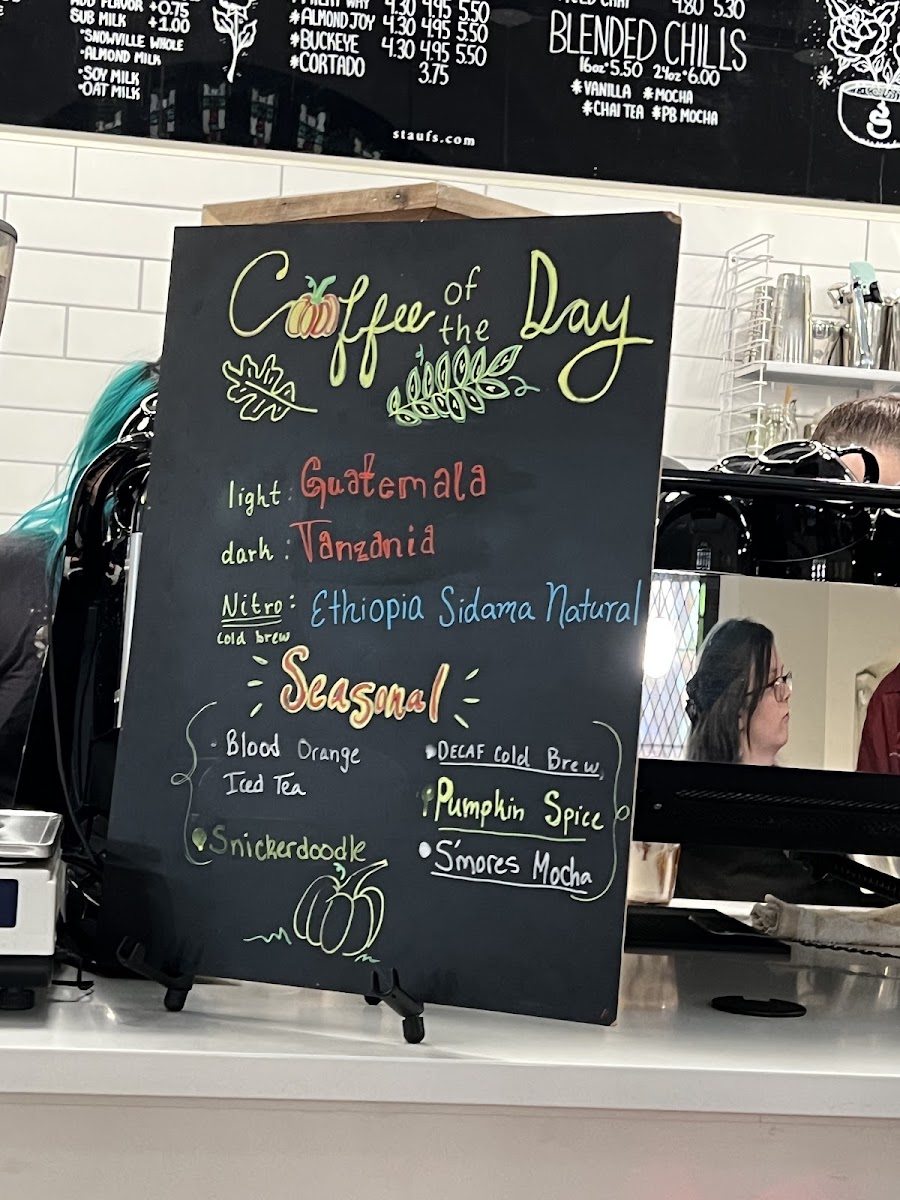 ADD FLAVOR +0.75
SUB MILK +1.00
*SNOWVILLE WHOLE
*ALMOND MILK
*SOY MILK
*OAT MILK
WAY 4.30 4.95 5.50
*ALMOND JOY 4.30 4.95 5.50
*BUCKEYE 4.30 4.95 5.50
*CORTADO 3.75
4.80 5.30
BLENDED CHILLS
16oz*5.50 24oz*6.00
*VANILLA *MOCHA
*CHAI TEA *PB MOCHA
staufs.com
Coffee of the Day
light: Guatemala
dark: Tanzania
Nitro: Ethiopia Sidama Natural
cold brew
Seasonal
Blood Orange
Iced Tea
Snickerdoodle
DECAF Cold Brew
Pumpkin Spice
S'mores Mocha